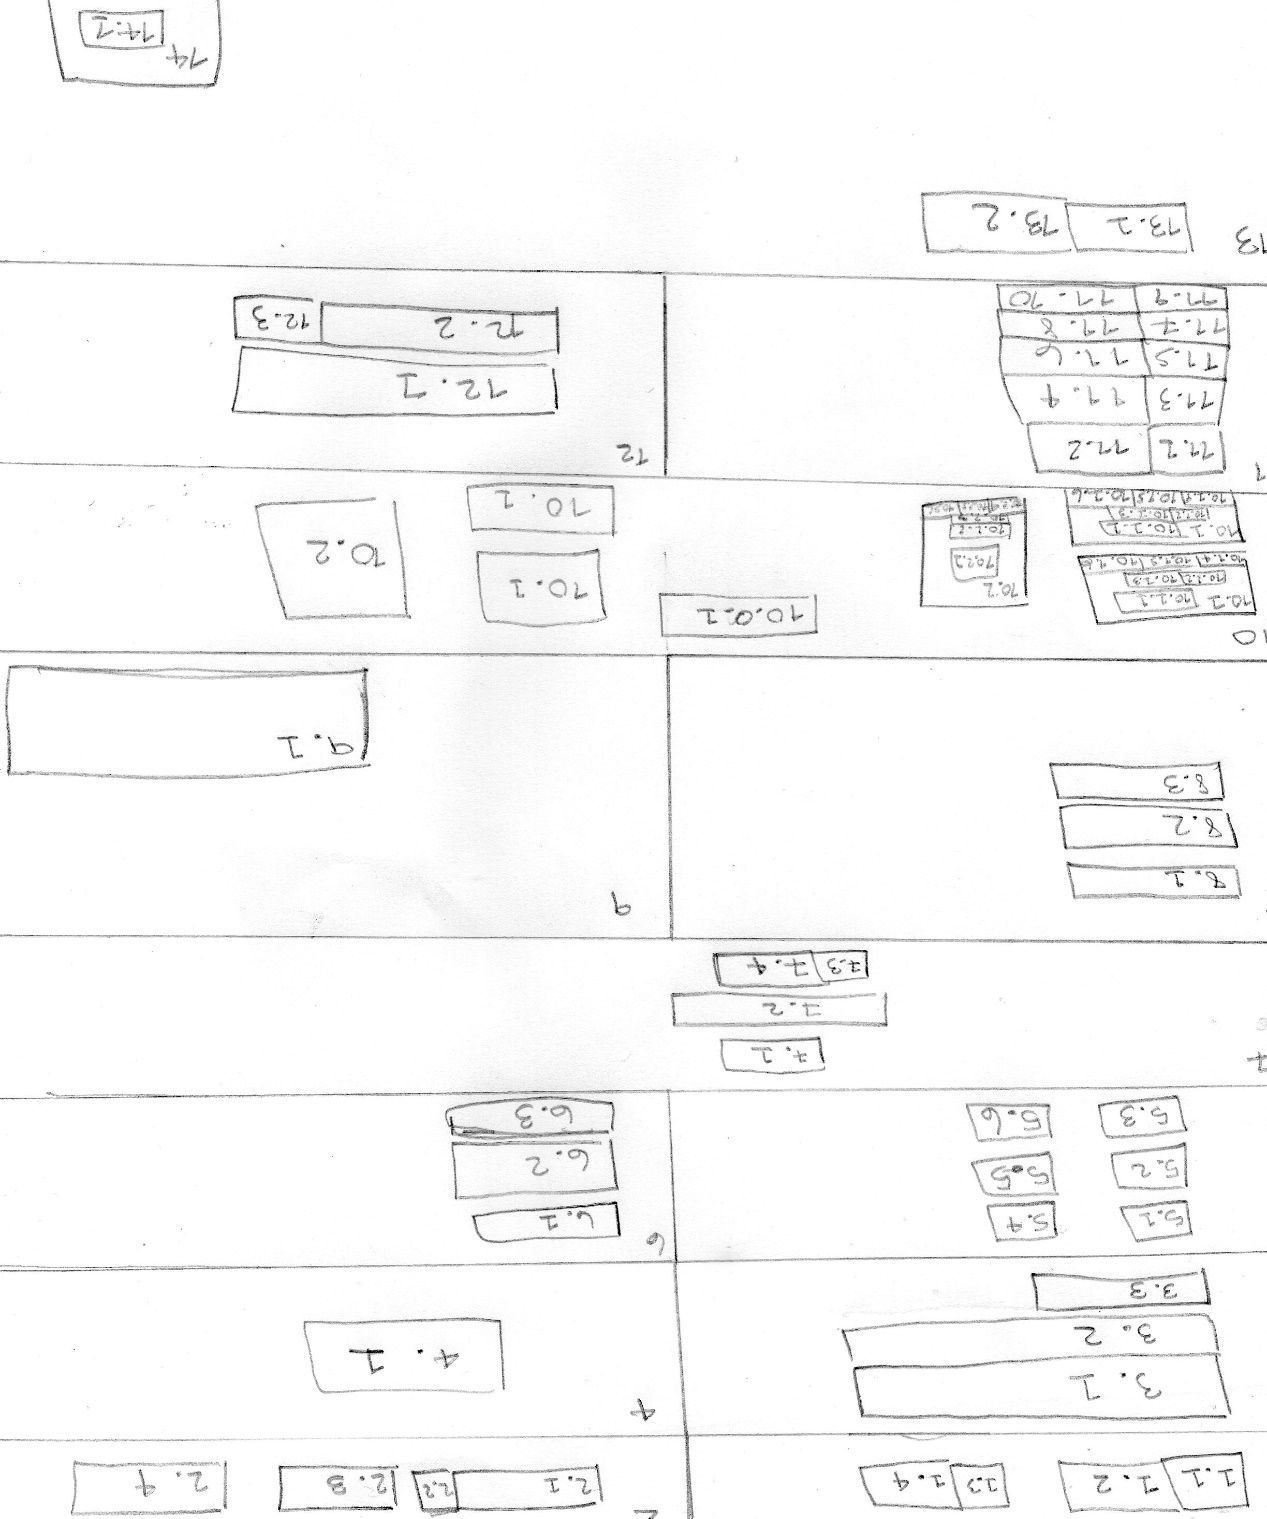 1.1 1.2 1.3 1.4
2
2.1 2.2 2.3 2.4
3.1
3.2
3.3
4
4.1
5.1 5.4
5.2 5.5
5.3 5.6
6
6.1
6.2
6.3
7
7.1
7.2
7.3 7.4
8.1
8.2
8.3
9
9.1
10
10.1 10.1.1
10.1.2 10.1.3
10.1.4 10.1.5 10.1.6
10.1 10.1.1
10.1.2 10.1.3
10.1.4 10.1.5 10.1.6
10.2
10.0.1
10.1
10.1
10.2
11.1 11.2
11.3 11.4
11.5 11.6
11.7 11.8
11.9 11.10
12
12.1
12.2 12.3
13
13.1 13.2
14
14.1